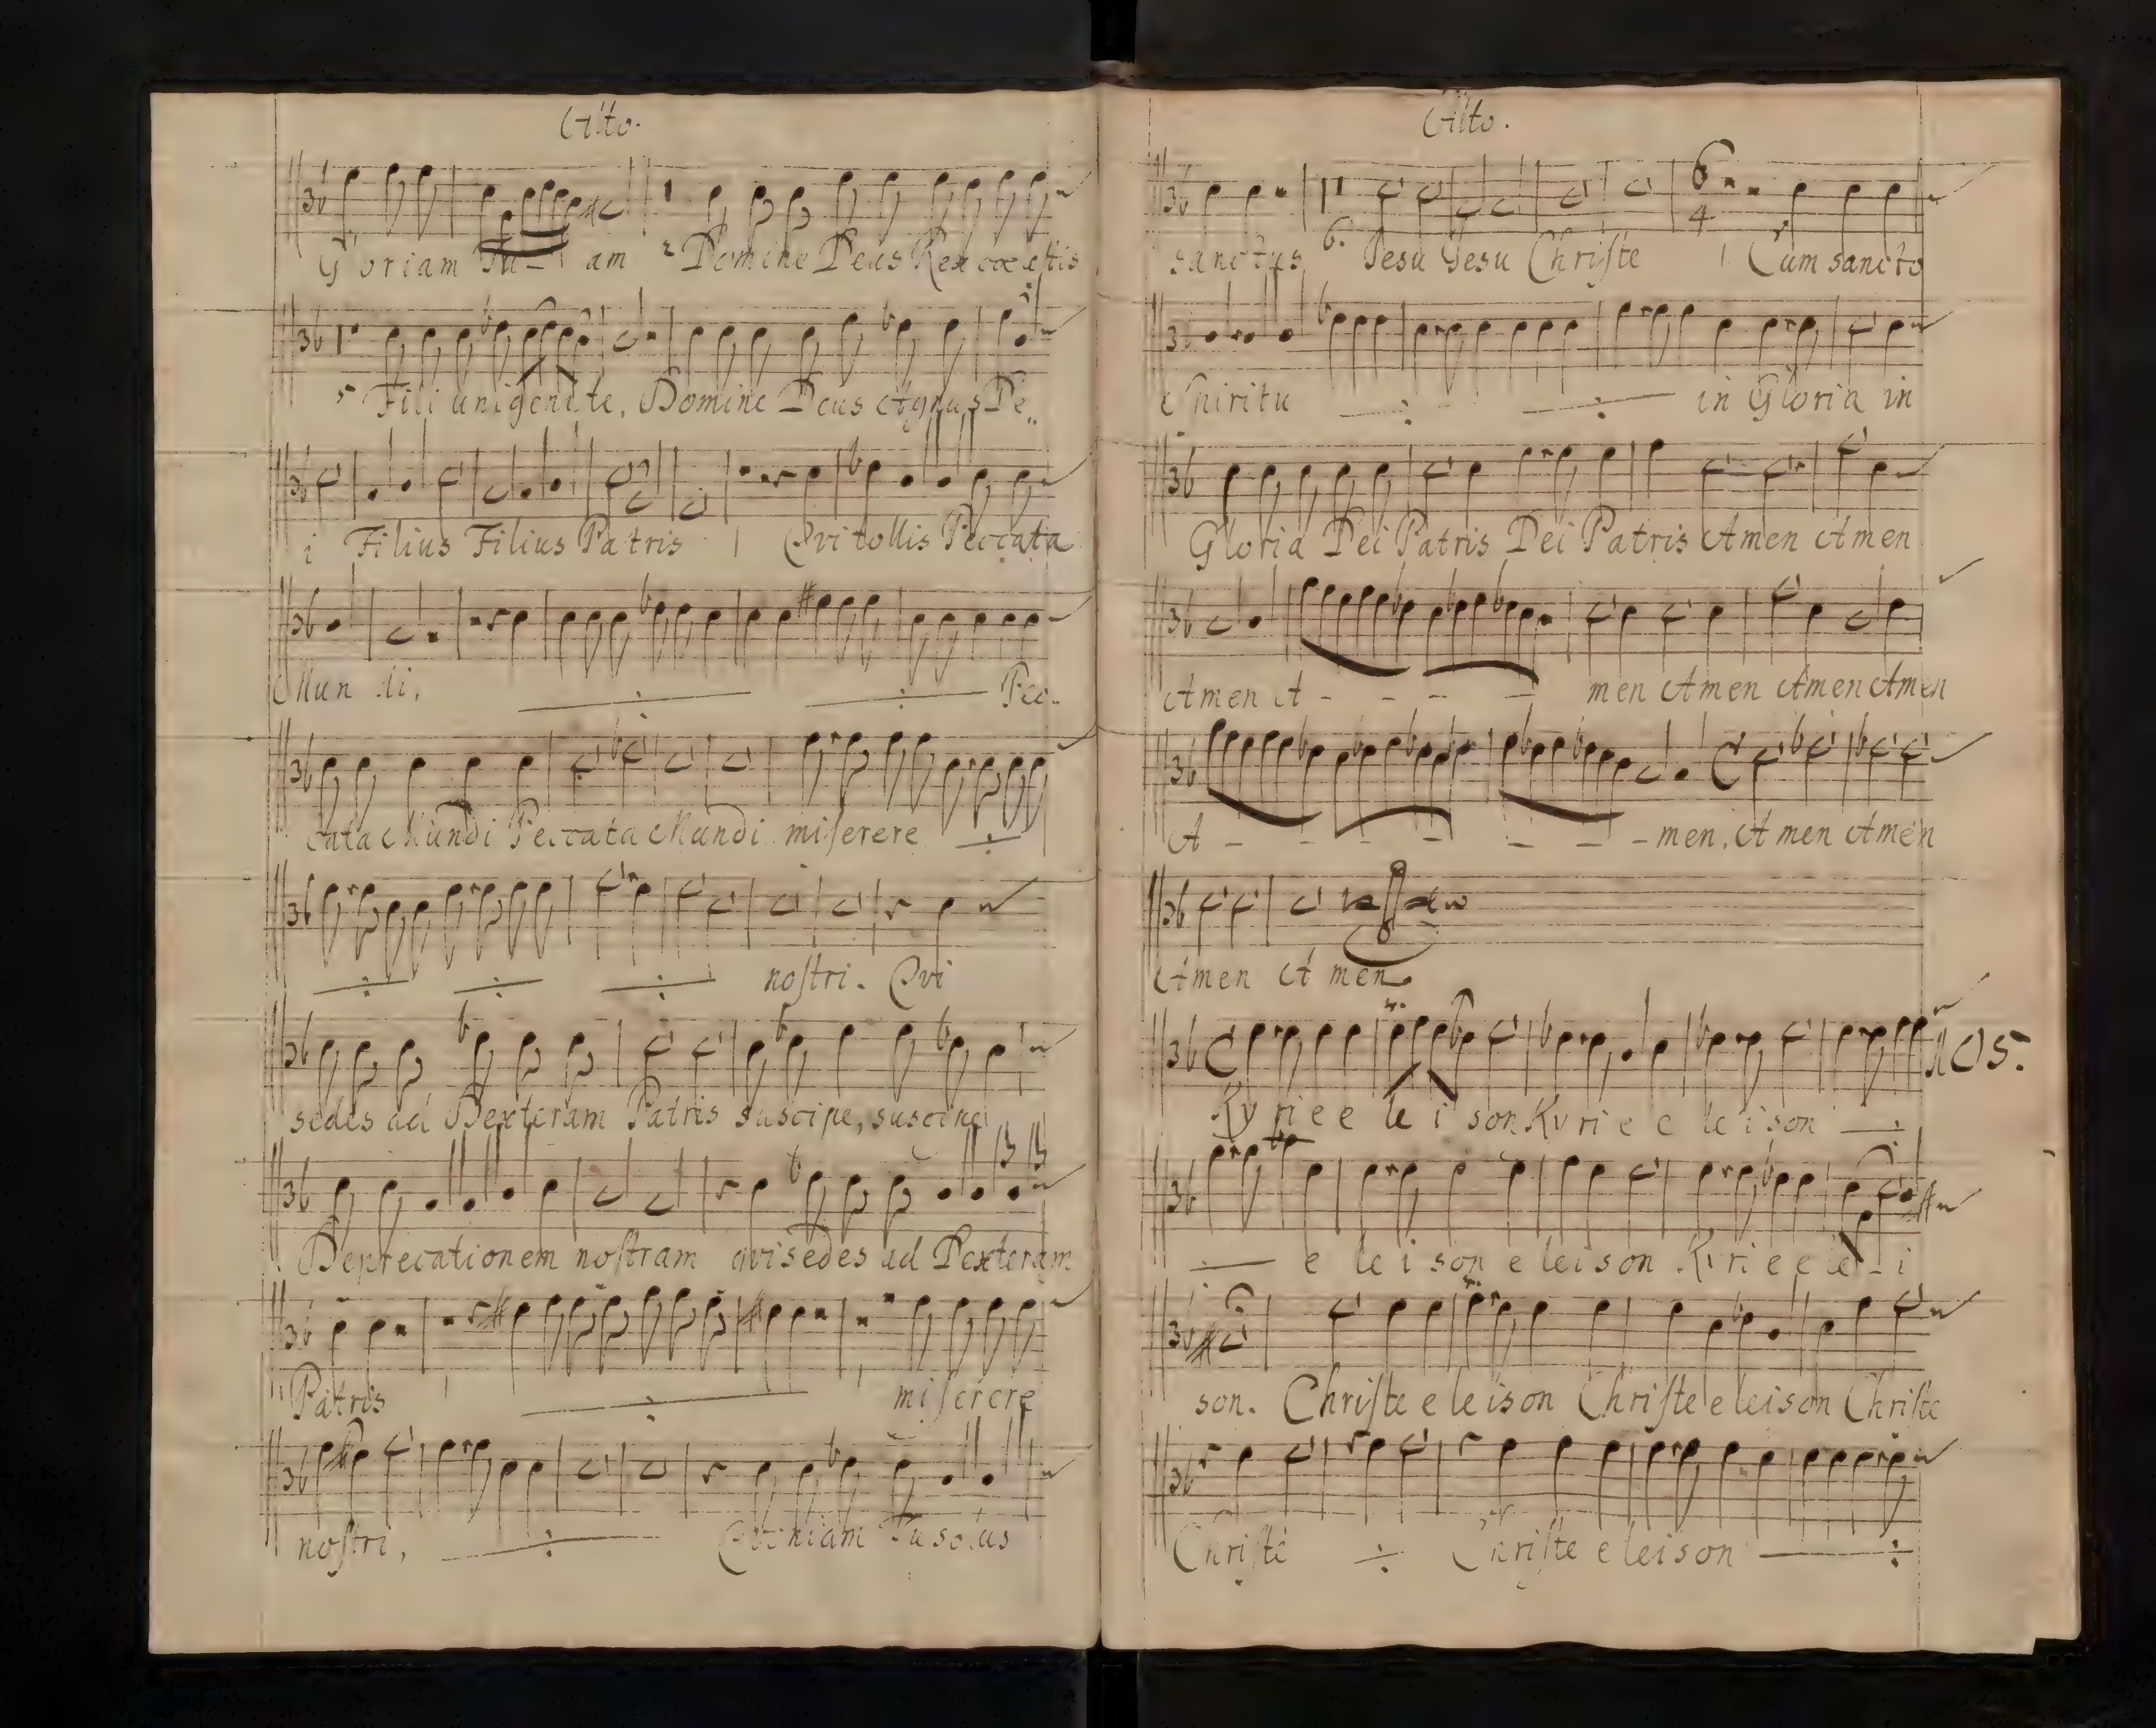 Alto.
Gloriam Tu - am 2 Domine Deus Rex cœlestis
5 Fili unigenite, Domine Deus Agnus De..
i Filius Filius Patris 1 Qvi tollis Peccata
Mundi, ÷ ÷ Pec..
cata Mundi Peccata Mundi miserere ÷
÷ ÷ ÷ nostri. Qvi
sedes ad Dexteram Patris suscipe, suscipe
Deprecationem nostram qvi sedes ad Dexteram
Patris ÷ miserere
nostri, ÷ Qvoniam Tu solus
Alto.
6 4
sanctus 6. Jesu Jesu Christe 1 Cum sancto
Spiritu ÷ ÷ in Gloria in
Gloria Dei Patris Dei Patris Amen Amen
Amen A - - - - men Amen Amen Amen
A - - - - - - - men, Amen Amen
Amen Amen
No 5.
Kyrie e le i son Kyri e e le i son ÷
÷ e le i son e lei son Kyri e e le - i
son. Christe e le is on Christe e leison Christe
Christe ÷ Christe e leison ÷